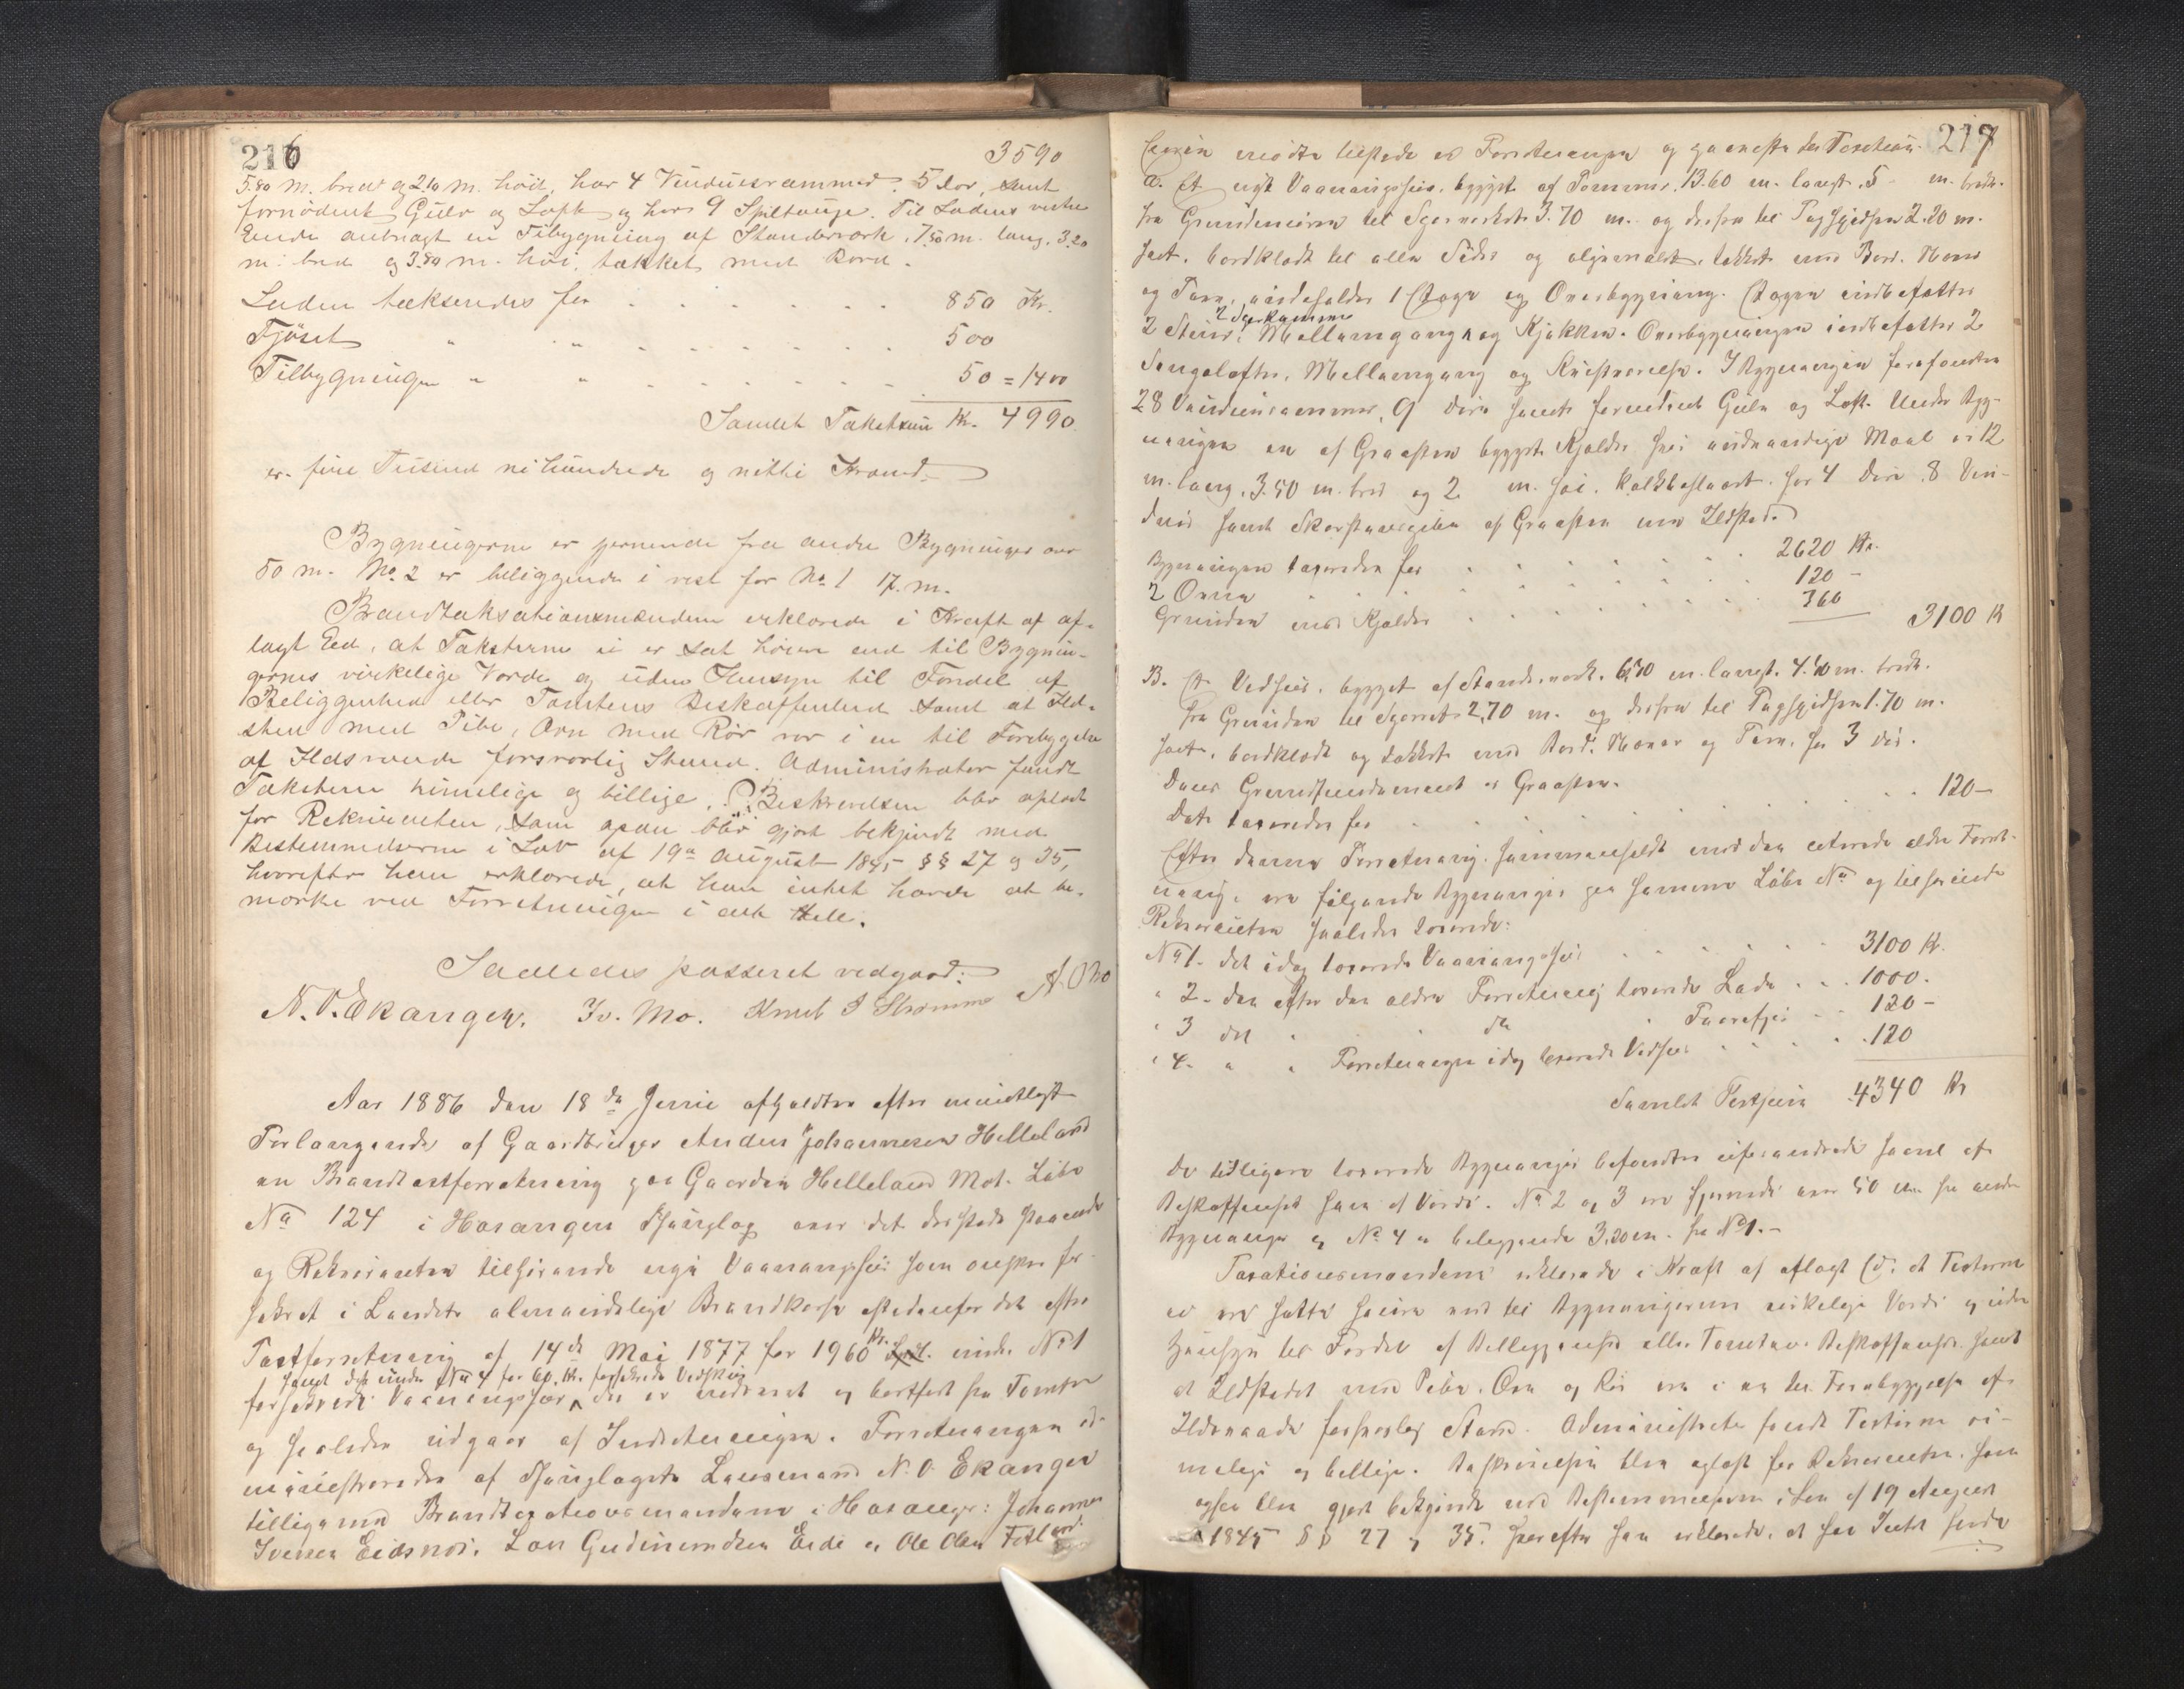 216
3590
5.80 M. bred og 2.10 m. höit, har 4 Vinduesrammer, 5 Dor, samt
fornödent Gulv og Loft og har 9 Spiltouge. Til Ladens vestre
Ende anbragt en Tilbygning af Standerværk, 7.50 m. lang, 3.20
m. bred og 3.80 m. höi, tækket med Bord.
Laden taksendes for 850 Kr.
Fjöset " " 500
Tilbygningen " " 50 = 1400
Samlet Takstsum Kr. 4990
er fire Tusind ni hundrede og nitti Kroner
Bygningerne er fjernende fra andre Bygninger over
50 m. No. 2 er beliggende i vest for No. 1 17 m.
Brandtaksationsmændene erklærede i Kraft af af-
lagt Eed, at Taksterne ei er sat höiere end til Bygnin-
gernes virkelige Værde og uden Hensyn til Fordel af
Beliggenhed eller Tomtens Beskaffenhed samt at Ild-
sted med Pibe, Ovn med Rör var i en til Forebyggelse
af Ildsvaade forsvarlig Stand. Administrator fandt
Taksterne rimelige og billige. Beskrivelsen blev oplæst
for Rekvirenten, som ogsaa blev gjort bekjendt med
Bestemmelserne i Lov af 19de August 1845 §§ 27 og 35,
hvorefter han erklærede, at han intet havde at be-
mærke ved Forretningen i det Hele.
Saaledes passeret vedgaar:
N. O. Ekanger. Iv. Mo. Knut I Strømme A. O. Mo
Aar 1886 den 18de Juni afholdtes efter mundtligt
Forlangende af Gaardbruger Anders Johannesen Helleland
en Brandtaxtforretning paa Gaarden Helleland Mat. Löbe
No 124 i Hosanger Thinglag over det dersteds staaende
og Rekvirenten tilhörende nye Vaaningshus som önskes for-
sikret i Landets almindelige Brandkasse istedenfor det efter
Taxtforretning af 14de Mai 1877 for 1960 Kr. under No 1
samt det under No 4 for 60 Kr. forsikrede Vedskur
forsikrede Vaaningshus, der er nedrevet og bortfört fra Tomten
og saaledes udgaar af Indretningen. Forretningen ad-
ministreredes af Thinglagets Lensmand N. O. Ekanger
tilligemed Brandtaxationsmændene i Hosanger: Johannes
Iversen Eidsnes, Lars Gudmundsen Eide og Ole Olsen Fotland.
217
Eieren mödte tilstede ved Forretningen og gaaes til Taxation:
A. Et nyt Vaaningshus, bygget af Tömmer, 13.60 m. langt, 5 m. bredt,
fra Grundmuren til Gesimsket 3.70 m. og derfra til Taghyldsen 2.20 m.
höit, bordklædt til alle Sider og oljemalet, tækket med Bord, Næver
og Törv, indeholder 1 Etage og Overbygning. Etagen indbefatter
2 Sovekammer
2 Stuer, Mellemgange og Kjökken. Overbygningen indbefatter 2
Sengelofter, Mellemgang og Kvistværelse. I Bygningen forefindes
28 Vinduesrammer, 9 Döre samt fornödent Gulv og Loft. Under Byg-
ningen en af Graasten bygget Kjelder hvis indvendige Maal er 12
m. lang, 3.50 m. bred og 2 m. höi, Kalkbeslaaet, har 4 Döre, 8 Vin-
duer samt Skorstenspibe af Graasten med Ildsted.
Bygningen taxeredes for 2620 Kr.
2 Ovne 120 –
Grunden med Kjelder 360
3100 Kr
B. Et Vedhus, bygget af Standerverk, 6.70 m. langt, 4.40 m. bredt,
fra Grunden til Gesimset 2,70 m. og derfra til Taghyldsen 1.70 m.
höit, bordklædt og tækket med Bord, Næver og Törv, har 3 Dör.
Dens Grundfundament er Graasten.
Det taxeredes for 120 –
Efter denne Forretning, sammenholdt med den citerede ældre Forret-
ning, ere fölgende Bygninger paa samme Löbe No og tilhörende
Rekvirenten saaledes taxerede:
No 1. det idag taxerede Vaaningshus 3100 Kr.
" 2. den efter den ældre Forretning taxerede Lade 1000.
" 3 det " do " 120 –
" 4. " " Forretningen idag taxerede Vedhus 120
Samlet Taxtsum 4340 Kr
De tidligere taxerede Bygninger befandtes uforandrede saavel af
Beskaffenhed som af Værdi. No 2 og 3 ere fjernede over 50 m. fra andre
Bygninger og No. 4 er beliggende 3.20 m. fra No 1. –
Taxationsmændene erklærede i Kraft af aflagt Ed, at Taxterne
ei ere satte höiere end til Bygningernes virkelige Værdi og uden
Hensyn til Fordel af Beliggenhed eller Tomtens Beskaffenhed, samt
at Ildstedet med Pibe, Ovn og Rör ere i en til Forebyggelse af
Ildsvaade forsvarlig Stand. Administrator fandt Taxterne ri-
melige og billige. Beskrivelsen blev oplæst for Rekvirenten, som
ogsaa blev gjort bekjendt med Bestemmelserne i Lov af 19 August
1845 §§ 27 og 35, hvorefter han erklærede, at han Intet havde